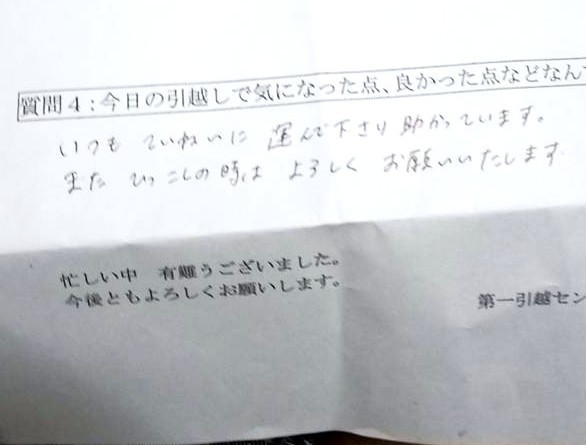 質問4:今日の引越しで気になった点、良かった点などなん
いつも ていねいに 運んで下さり 助かっています。
また ひっこしの時は よろしく お願いいたします
忙しい中 有難うございました。
今後ともよろしくお願いします。
第一引越セン